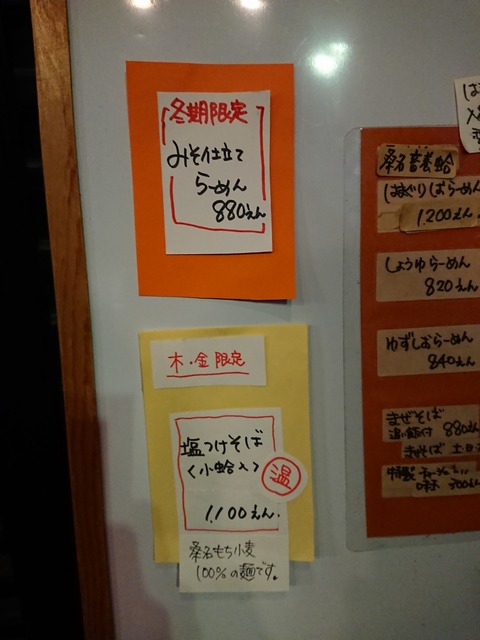 冬期限定
みそ仕立て
らーめん
880えん
木・金限定
塩つけそば
<小蛤入>
温
1,100えん.
桑名もち小麦
100%の麺です。
桑名産養蛤
はまぐりしおらーめん
1,200えん
しょうゆらーめん
820えん
ゆずしおらーめん
840えん
まぜそば
追い飯付 880えん
まぜそば 土・日
特製